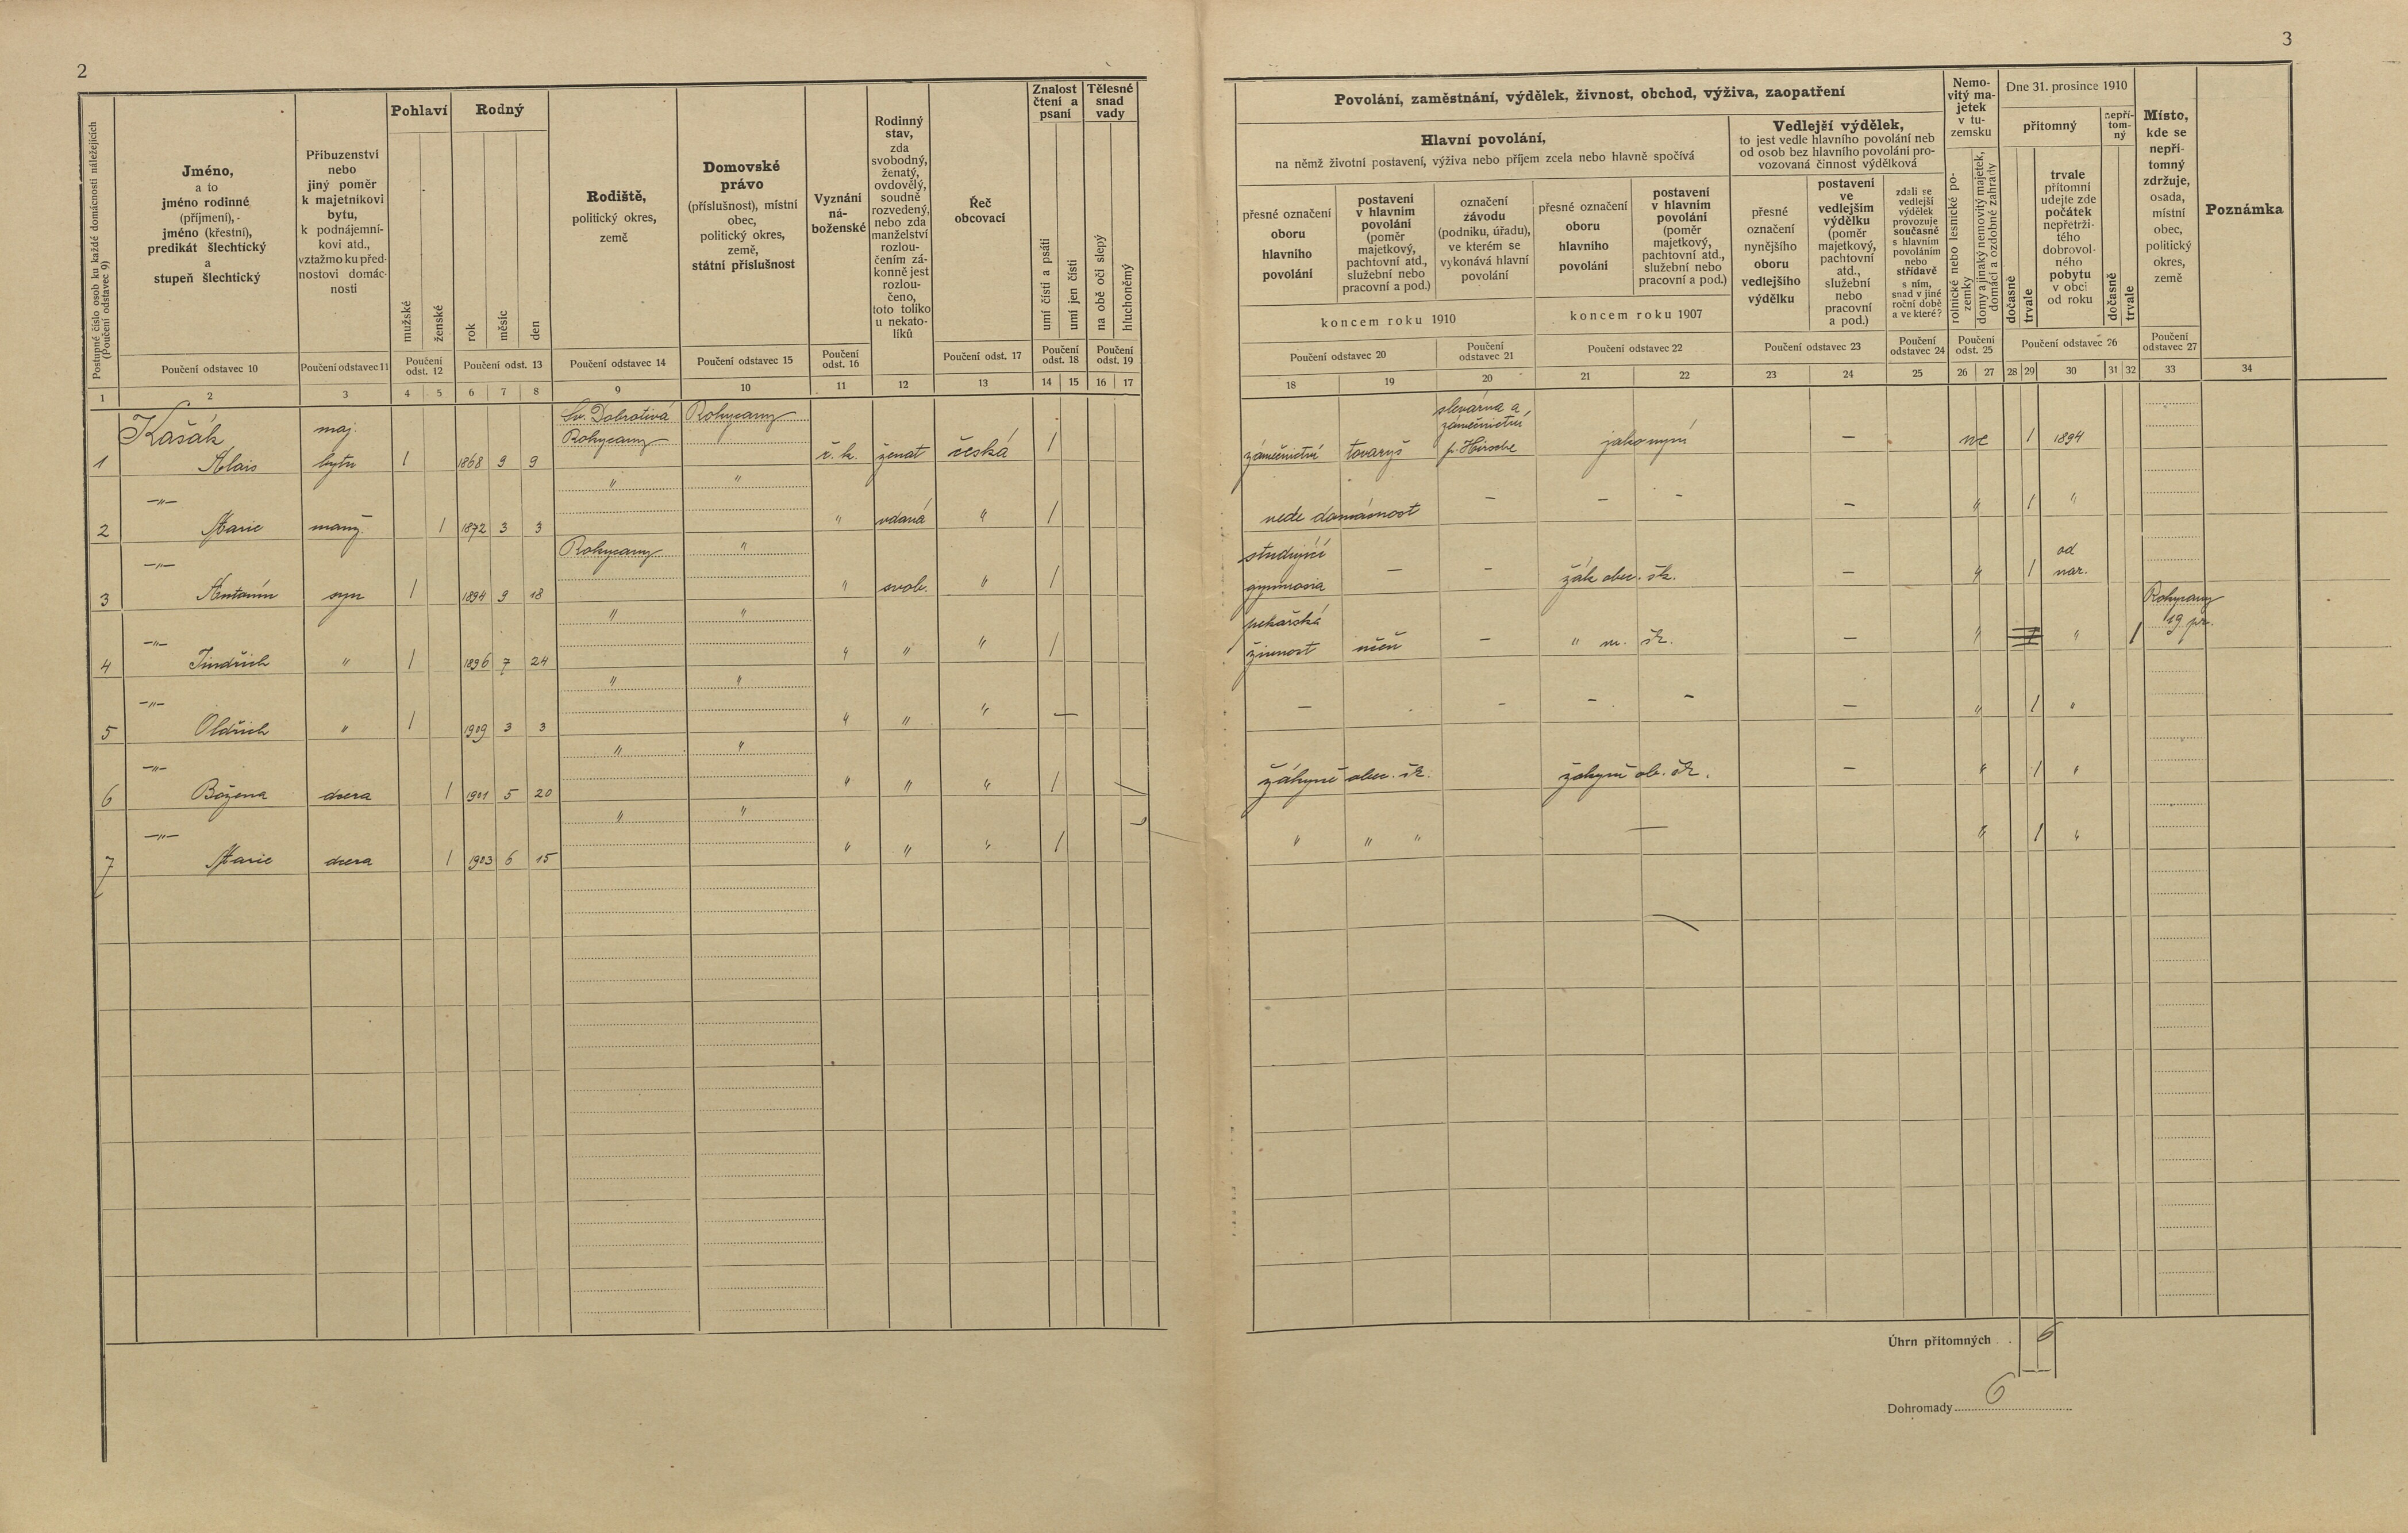 2
3
Postupné číslo osob ku každé domácnosti náležejících
(Poučení odstavec 9)
Jméno,
a to
jméno rodinné
(příjmení),
jméno (křestní),
predikát šlechtický
a
stupeň šlechtický
Příbuzenství
nebo
jiný poměr
k majetníkovi
bytu,
k podnájemní-
kovi atd.,
vztažmo ku před-
nostovi domác-
nosti
Pohlaví
mužské
ženské
Rodný
rok
měsíc
den
Rodiště,
politický okres,
země
Domovské
právo
(příslušnost), místní
obec,
politický okres,
země,
státní příslušnost
Vyznání
ná-
boženské
Rodinný
stav,
zda
svobodný,
ženatý,
ovdovělý,
soudně
rozvedený,
nebo zda
manželství
rozlou-
čením zá-
konně jest
rozlou-
čeno,
toto toliko
u nekato-
líků
Řeč
obcovací
Znalost
čtení a
psaní
umí čísti a psáti
umí jen čísti
Tělesné
snad
vady
na obě oči slepý
hluchoněmý
Poučení odstavec 10
Poučení odstavec 11
Poučení
odst. 12
Poučení odst. 13
Poučení odstavec 14
Poučení odstavec 15
Poučení
odst. 16
Poučení odst. 17
Poučení
odst. 18
Poučení
odst. 19
1 2 3 4 5 6 7 8 9 10 11 12 13 14 15 16 17
Povolání, zaměstnání, výdělek, živnost, obchod, výživa, zaopatření
Hlavní povolání,
na němž životní postavení, výživa nebo příjem zcela nebo hlavně spočívá
přesné označení
oboru
hlavního
povolání
postavení
v hlavním
povolání
(poměr
majetkový,
pachtovní atd.,
služební nebo
pracovní a pod.)
označení
závodu
(podniku, úřadu),
ve kterém se
vykonává hlavní
povolání
přesné označení
oboru
hlavního
povolání
postavení
v hlavním
povolání
(poměr
majetkový,
pachtovní atd.,
služební nebo
pracovní a pod.)
koncem roku 1910
koncem roku 1907
Vedlejší výdělek,
to jest vedle hlavního povolání neb
od osob bez hlavního povolání pro-
vozovaná činnost výdělková
přesné
označení
nynějšího
oboru
vedlejšího
výdělku
postavení
ve
vedlejším
výdělku
(poměr
majetkový,
pachtovní
atd.,
služební
nebo
pracovní
a pod.)
zdali se
vedlejší
výdělek
provozuje
současně
s hlavním
povoláním
nebo
střídavě
s ním,
snad v jiné
roční době
a ve které?
Nemo-
vitý ma-
jetek
v tu-
zemsku
rolnické nebo lesnické po-
zemky
domy a jinaký nemovitý majetek,
domácí a ozdobné zahrady
Dne 31. prosince 1910
přítomný
nepří-
tom-
ný
dočasně
trvale
trvale
přítomní
udejte zde
počátek
nepřetrži-
tého
dobrovol-
ného
pobytu
v obci
od roku
dočasně
trvale
Místo,
kde se
nepří-
tomný
zdržuje,
osada,
místní
obec,
politický
okres,
země
Poznámka
Poučení odstavec 20
Poučení
odstavec 21
Poučení odstavec 22
Poučení odstavec 23
Poučení
odstavec 24
Poučení
odst. 25
Poučení odstavec 26
Poučení
odstavec 27
18 19 20 21 22 23 24 25 26 27 28 29 30 31 32 33 34
Kašák maj. Sv. Dobrotivá Rokycany
Rokycany
1 Alois bytu 1 1868 9 9 ř. k. ženat česká 1
slevárna a
zámečnictví
zámečnictví tovaryš p. Hirsche jako nyní — ne 1 1894
—"— " "
2 Marie manž. 1 1872 3 3 " vdaná " 1
vede domácnost — — - — " 1 "
—"— Rokycany "
3 Antonín syn 1 1894 9 18 " svob. " 1
studující
gymnasia — — žák obec. šk. — " 1 od
nar.
—"— " "
4 Jindřich " 1 1896 7 24 " " " 1
pekařská
živnost učeň — " m. šk. — " 1 " 1 Rokycany
19 pr.
—"— " "
5 Oldřich " 1 1909 3 3 " " " —
— - - - — " 1 "
—"— " "
6 Božena dcera 1 1901 5 20 " " " 1
žákyně obec. šk. žákyně ob. šk. — " 1 "
—"— " "
7 Marie dcera 1 1903 6 15 " " " 1
" " " — " 1 "
Úhrn přítomných . . 6
Dohromady 6